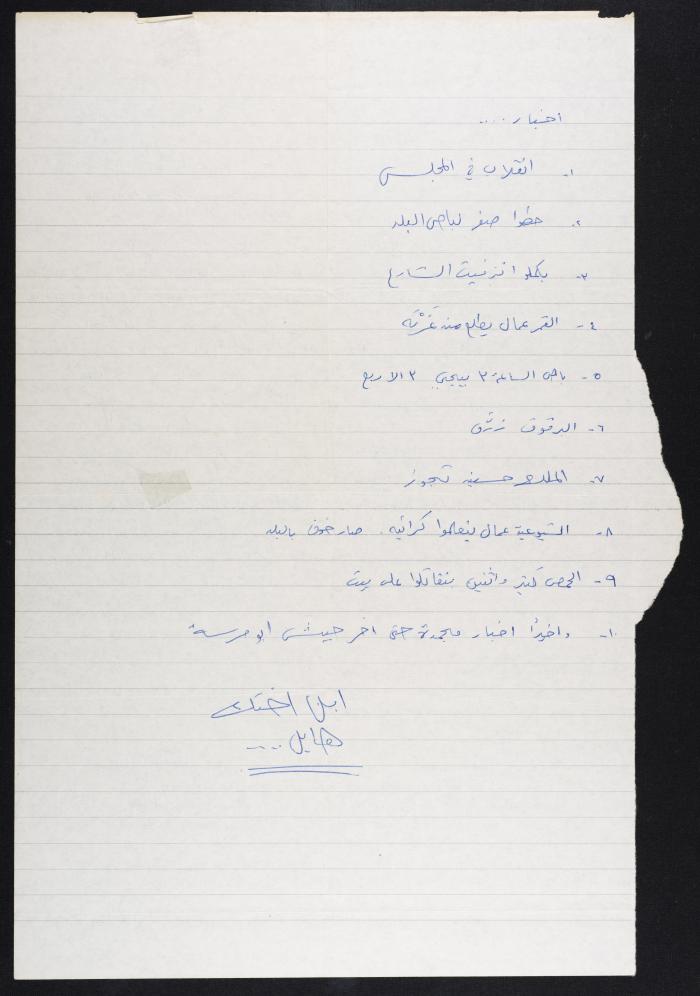 اخبار ....
١- انقلاب في المجلس
٢- حطوا صفر لباص البلد
٣- بكملوا تزفيت الشارع
٤- القمر عمال يطلع من غزة
٥- باص الساعة ٣ بيجي ٣ الا ربع
٦- البرقوق زرّق
٧- الملك حسين تجوز
٨- الشيوعية عمال يتعلموا كراتيه. صار خوف بالبلد
٩- الحمص كثير واثنين بتقاتلوا على بيت
١٠- واخيراً اخبار مجمدة حتى اخر حيشي ابو مرسة
ابن اختك
هايل ....